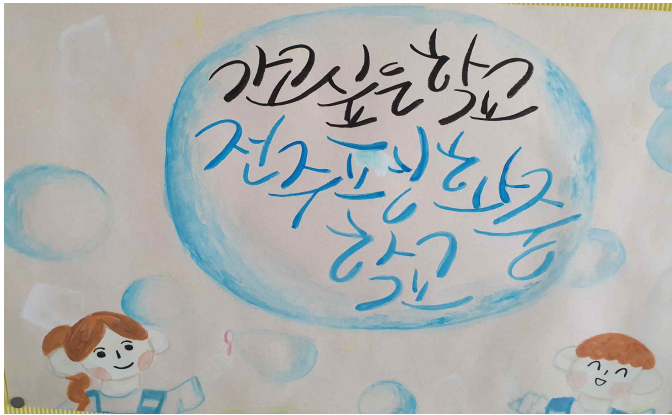 가고싶은학교
전주평화중
학교